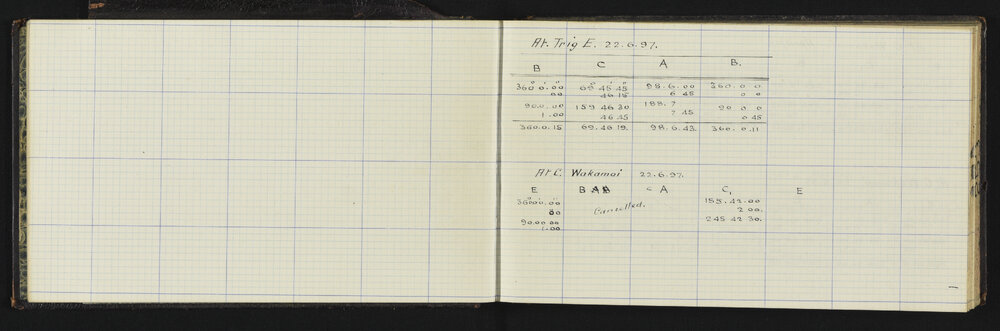 At. Trig E. 22.6.97.
B C A B.
360.0.00 69.45.45 98.6.00 360.0 0
00 46 15 6 45 0 0
90.0.00 159.46.30 188.7 90 0 0
1.00 46 45 7 45 0 45
360.0.15 69.46.19. 98.6.43. 360.0.11
At C. Wakamoi 22.6.97.
E B A B A C, E
360.00.00 155.42.00
00 Cancelled. 2 00.
90.00.00 245 42 30.
1.00